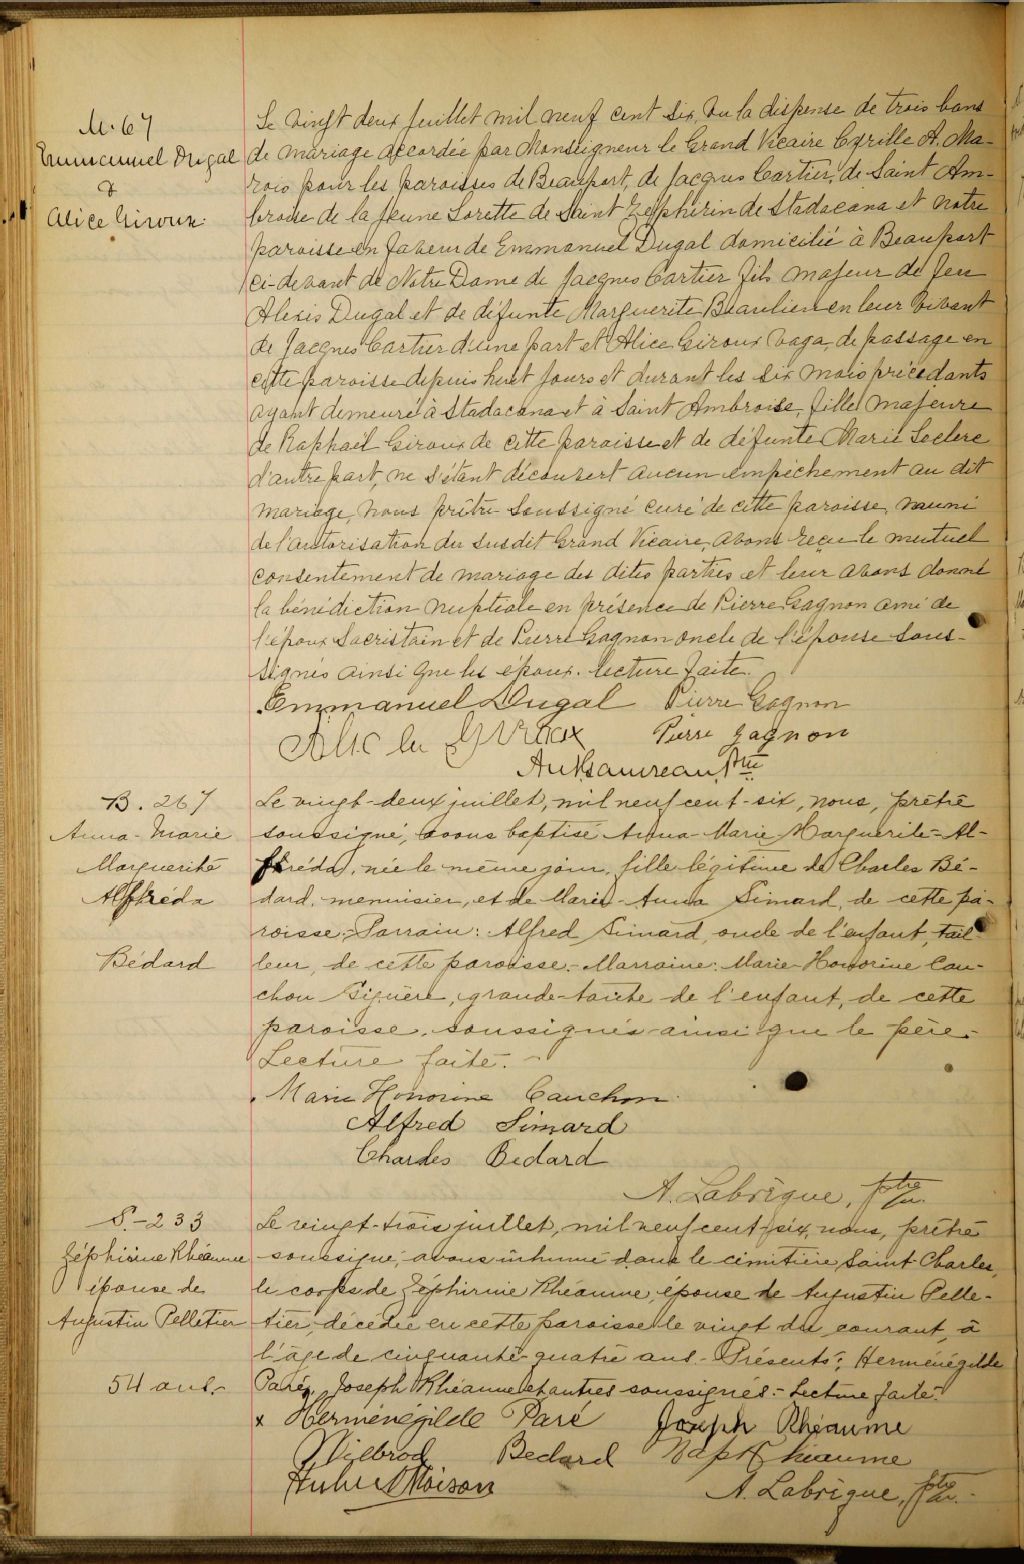 M. 67
Emmanuel Dugal
&
Alice Giroux
Le vingt deux Juillet mil neuf cent six, Vu la dispense de trois bans
de mariage accordée par Monseigneur le Grand Vicaire Cyrille A. Ma-
rois pour les paroisses de Beauport, de Jacques Cartier, de Saint Am-
broise de la Jeune Lorette de Saint Zéphirin de Stadacana et notre
paroisse en faveur de Emmanuel Dugal domicilié à Beauport
ci-devant de Notre Dame de Jacques Cartier fils majeur de feu
Alexis Dugal et de défunte Marguerite Beaulieu en leur vivant
de Jacques Cartier d'une part et Alice Giroux vaga, de passage en
cette paroisse depuis huit jours et durant les six mois précédants
ayant demeuré à Stadacana et à Saint Ambroise, fille majeure
de Raphaël Giroux de cette paroisse et de défunte Marie Leclerc
d'autre part, ne s'étant découvert aucun empêchement au dit
mariage, nous prêtre soussigné curé de cette paroisse, muni
de l'autorisation du susdit Grand Vicaire, avons reçu le mutuel
consentement de mariage des dites parties et leur avons donné
la bénédiction nuptiale en présence de Pierre Gagnon ami de
l'époux Sacristain et de Pierre Gagnon oncle de l'épouse sous-
signés ainsi que les époux. lecture faite.
Emmanuel Dugal Pierre Gagnon
Alice Giroux Pierre gagnon
Ptre
B. 267
Anna-Marie
Marguerite
Alfréda
Bédard
Le vingt-deux juillet, mil neuf cent-six, nous, prêtre
soussigné, avons baptisé Anna-Marie Marguerite-Al-
fréda, née le même jour, fille légitime de Charles Bé-
dard, menuisier, et de Marie-Anna Simard, de cette pa-
roisse. Parrain: Alfred Simard, oncle de l'enfant, tail-
leur, de cette paroisse.- Marraine: Marie-Honorine Cau-
chon Giguère, grande-tante de l'enfant, de cette
paroisse, soussignés ainsi que le père.-
Lecture faite.-
Marie Honorine Cauchon
Alfred Simard
Charles Bedard
A. Labrèque, ptre
S.-233
Zéphirine Rhéaume
épouse de
Augustin Pelletier
54 ans.-
Le vingt-trois juillet, mil neuf cent-six, nous, prêtre
soussigné, avons inhumé dans le cimetière Saint Charles,
le corps de Zéphirine Rhéaume, épouse de Augustin Pelle-
tier, décédée en cette paroisse le vingt du courant, à
l'âge de cinquante-quatre ans.- Présents: Herménégilde
Paré, Joseph Rhéaume et autres soussignés.- Lecture faite.-
x Herménégilde Paré Joseph Rhéaume
Wilbrod Bedard Nap Rhéaume
Moison
A. Labrèque, ptre